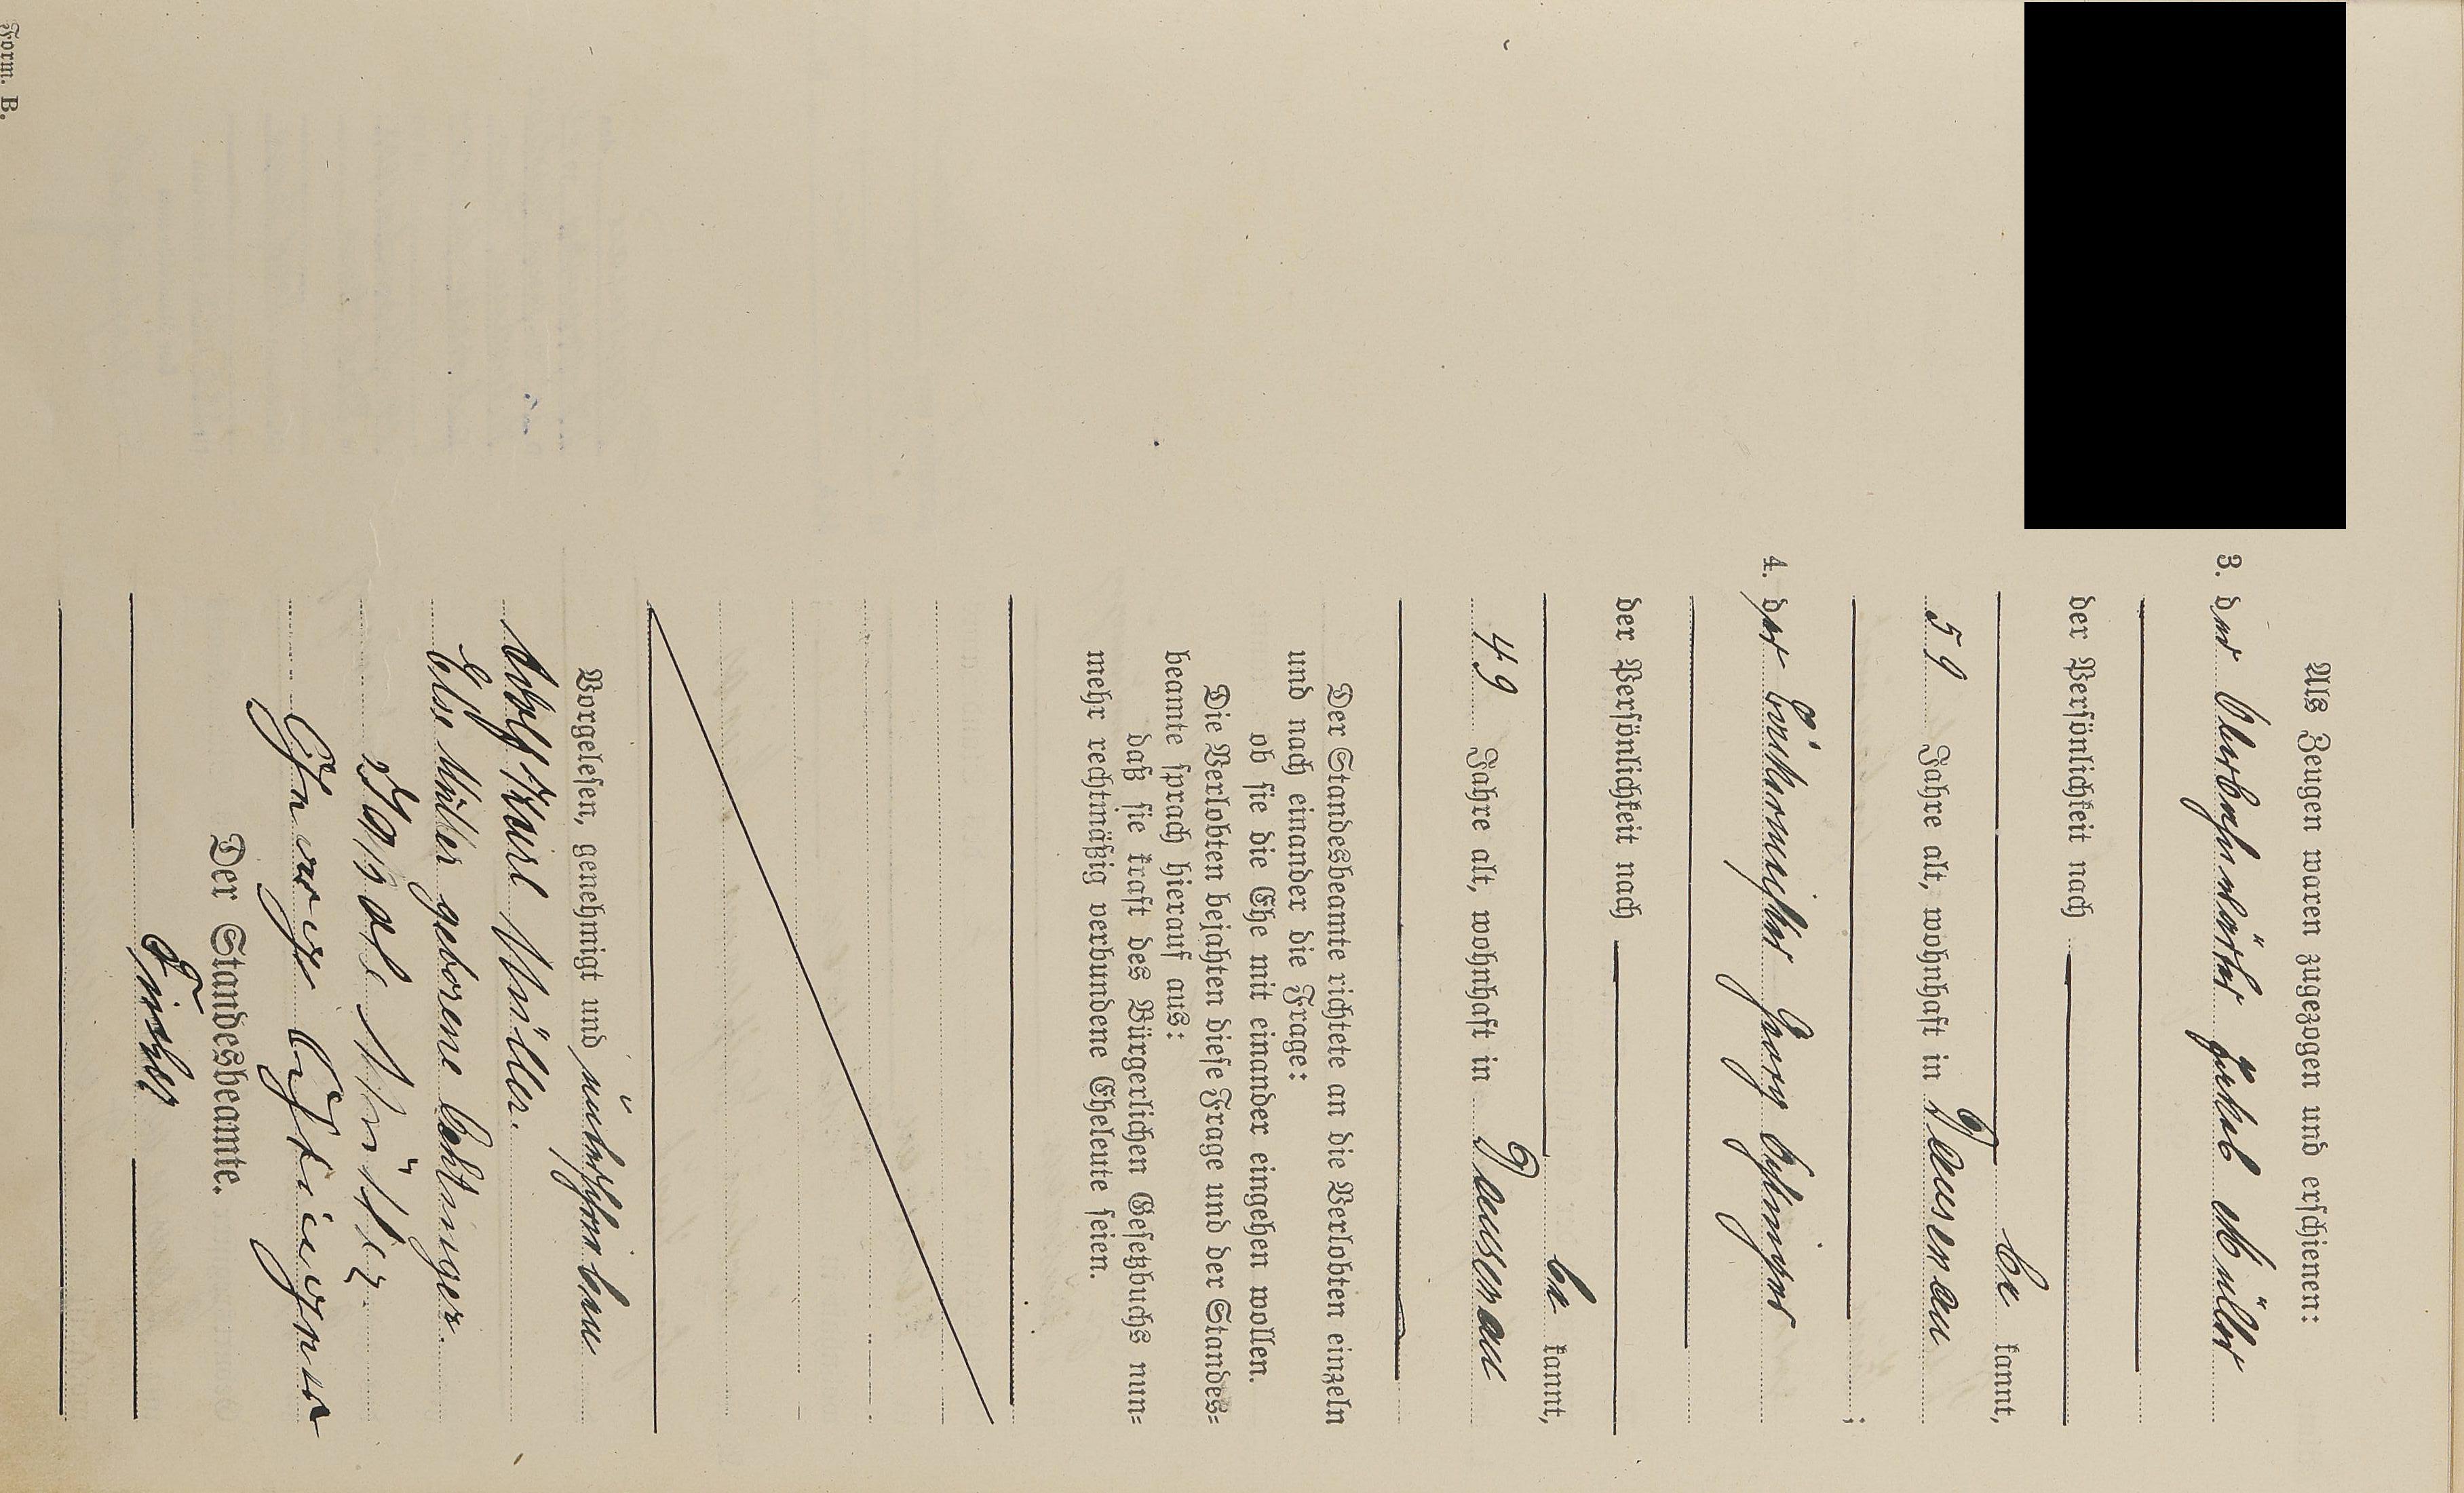 Als Zeugen waren zugezogen und erschienen:
3. der Oberbahnwärter Jakob Müller
der Persönlichkeit nach
be kannt,
59 Jahre alt, wohnhaft in Dausenau
;
4. der Georg
der Persönlichkeit nach
be kannt,
49 Jahre alt, wohnhaft in Dausenau
Der Standesbeamte richtete an die Verlobten einzeln
und nach einander die Frage:
ob sie die Ehe mit einander eingehen wollen.
Die Verlobten bejahten diese Frage und der Standes=
beamte sprach hierauf aus:
daß sie kraft des Bürgerlichen Gesetzbuchs nun=
mehr rechtmäßig verbundene Eheleute seien.
Vorgelesen, genehmigt und unterschrieben
Adolf Karl Müller.
Else Müller geborene
Jakob Müller.
Georg
Der Standesbeamte.
Form. B.